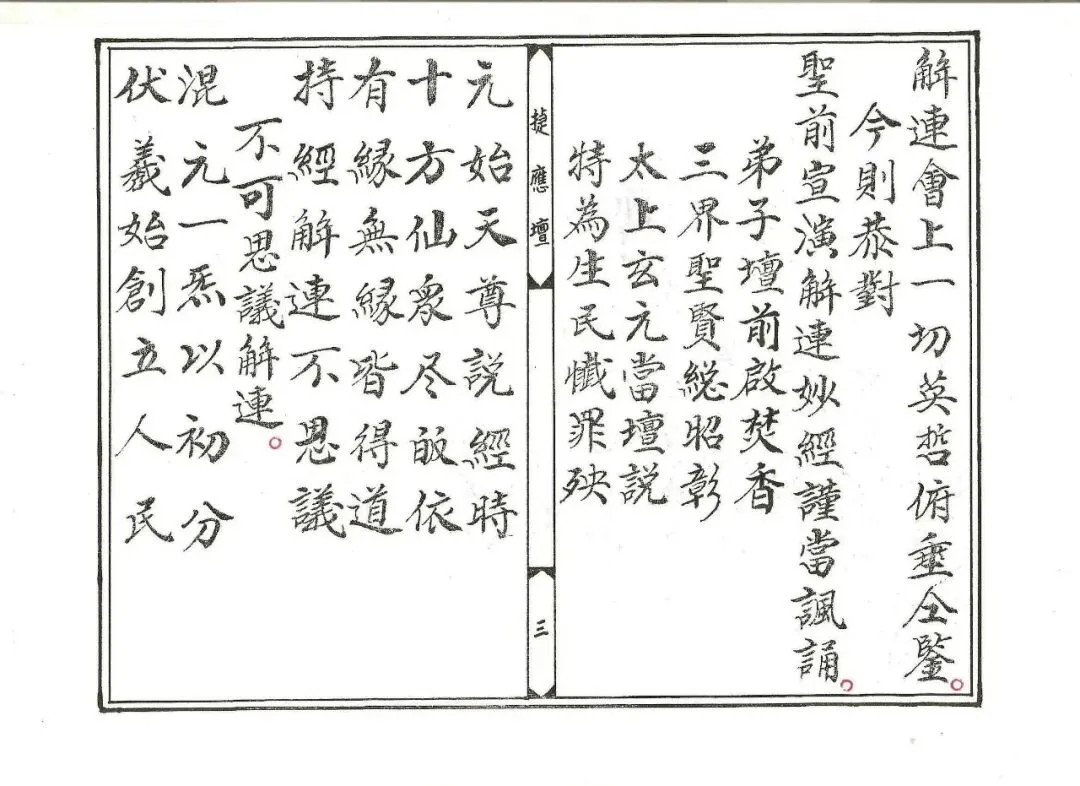 解連會上一切英哲俯垂仝鑒
今則恭對
聖前宣演解連妙經謹當諷誦
弟子壇前啟焚香
三界聖賢総昭彰
太上玄元當壇說
特為生民懺罪殃
捷應壇
三
元始天尊說經時
十方仙衆尽皈依
有緣無緣皆得道
持經解連不思議
不可思議解連
混元一炁以初分
伏羲始創立人民